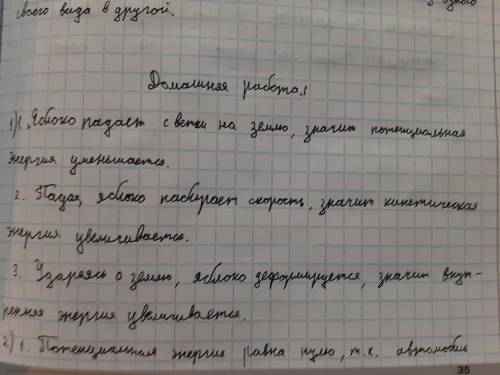 своего вида в другой.
Домашняя работа.
1) 1. Яблоко падает с ветки на землю, значит потенциальная
энергия уменьшается.
2. Падая, яблоко набирает скорость, значит кинетическая
энергия увеличивается.
3. Ударяясь о землю, яблоко деформируется, значит внут-
ренняя энергия увеличивается.
2) 1. Потенциальная энергия равна нулю, т.к. автомобиль
35